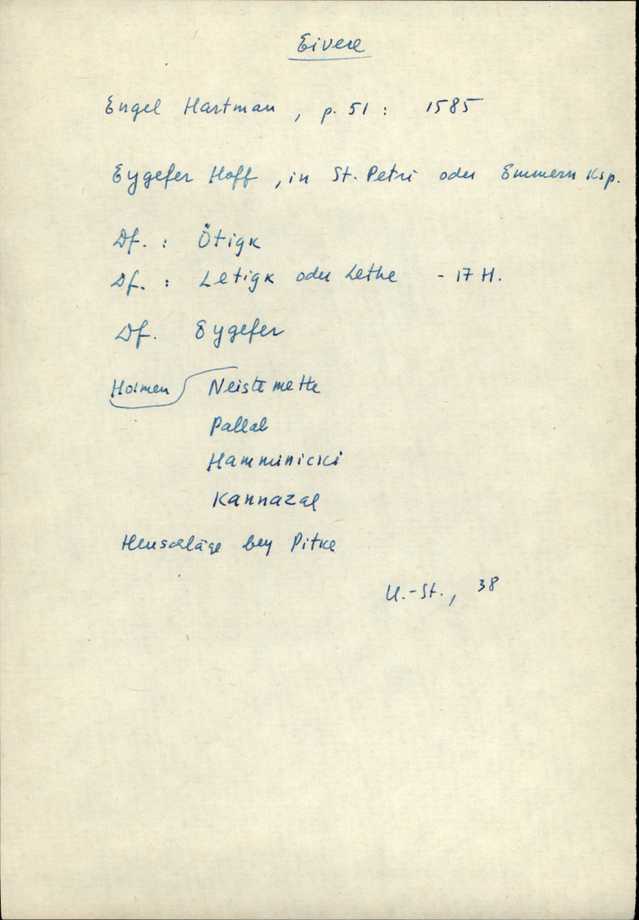 Eivere
Engel Hartman, p. 51: 1585
Eygefer Hoff, in St. Petri oder Emmern Ksp.
Df.: Ötigk
Df.: Letigk oder Lethe - 17 H.
Df. Eygefer
Holmen Neistemette
Pallal
Hamminicki
Kannazal
Heuschläge bey Pitke
U.-St., 38